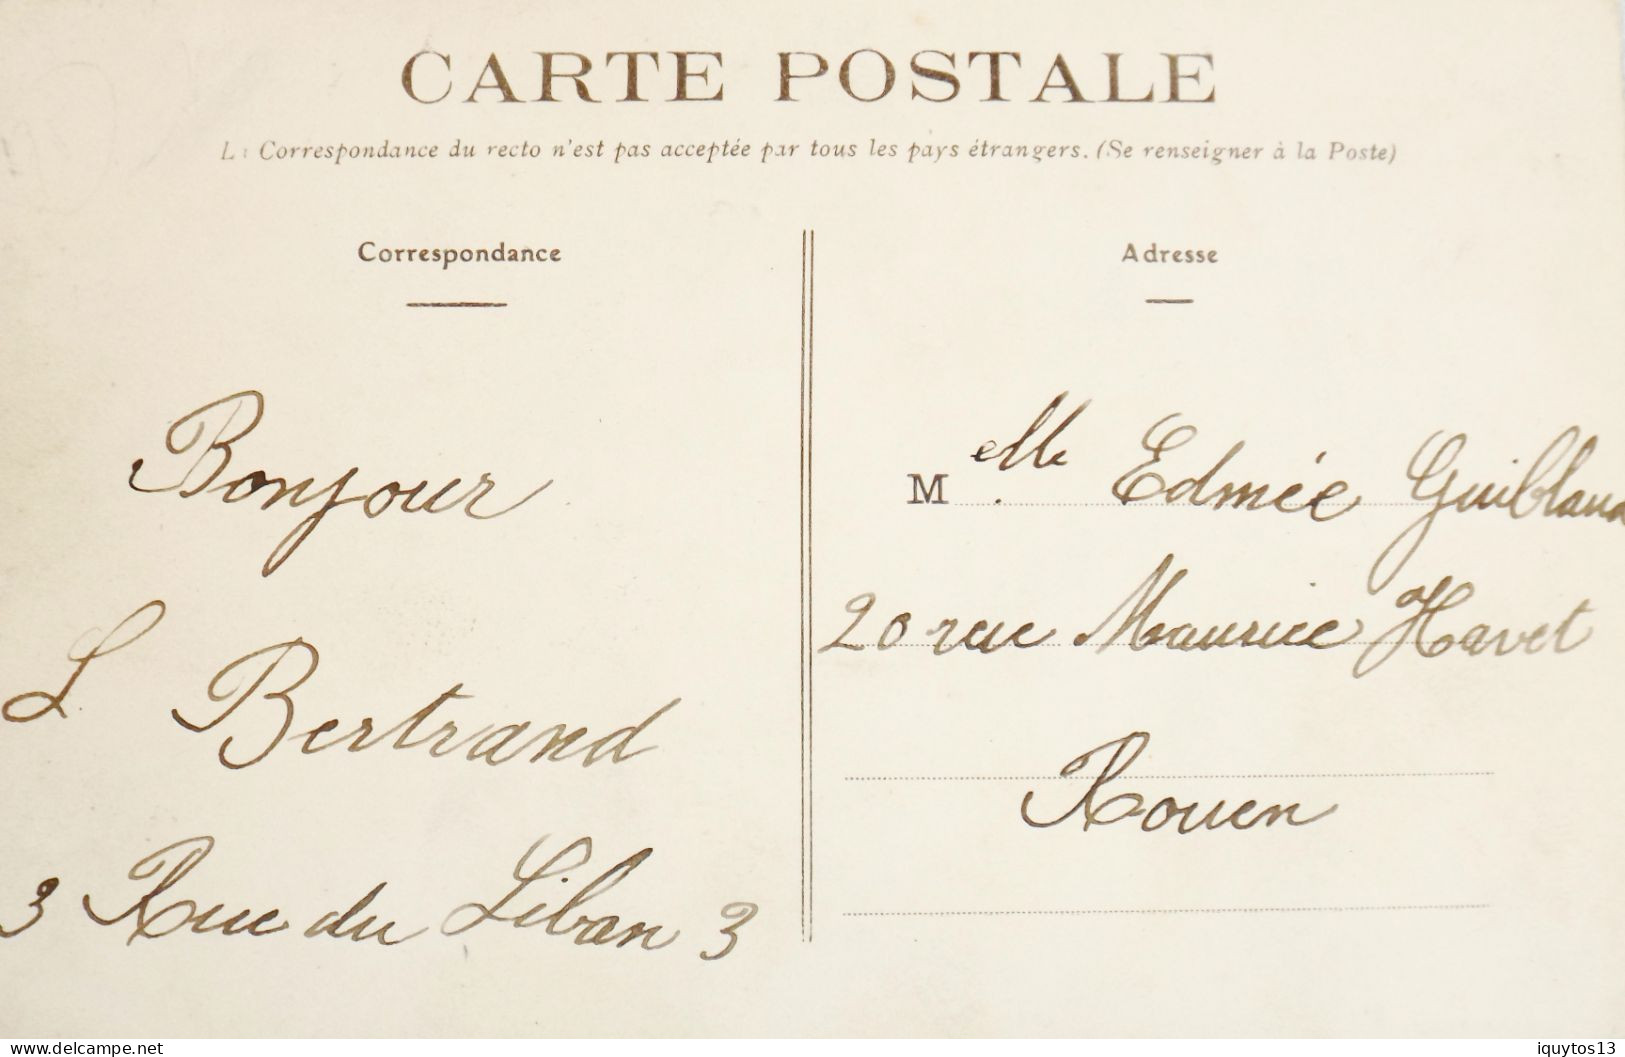 CARTE POSTALE
La Correspondance du recto n'est pas acceptée par tous les pays étrangers. (Se renseigner à la Poste)
Correspondance
Bonjour
L. Bertrand
3 Rue du Liban 3
Adresse
Melle Edmée Guibland
20 rue Maurice Havet
Rouen
www.delcampe.net
iquytos13